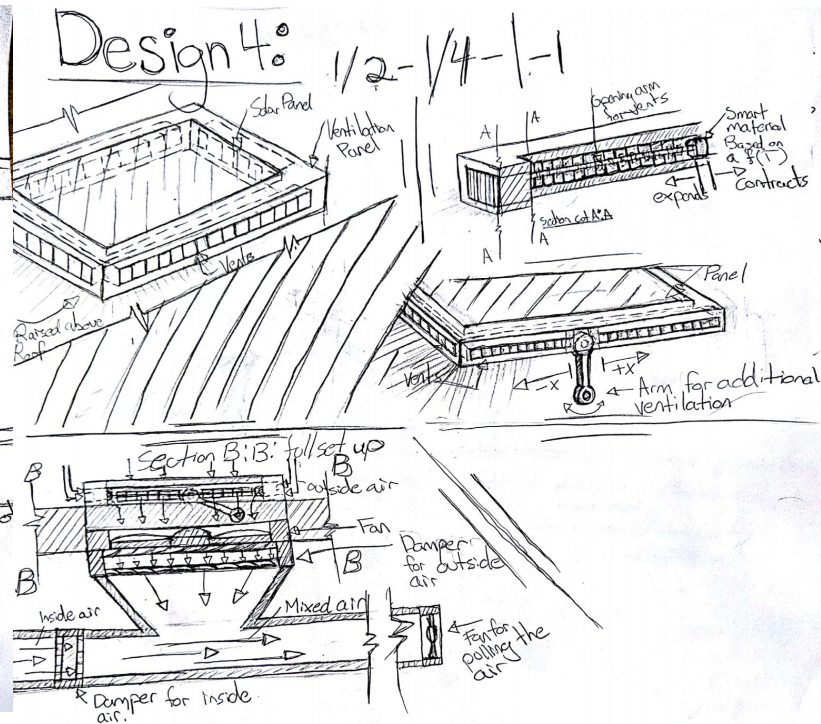 Design 4:
1/2-1/4-1-1
Solar Panel
Ventilation
Panel
Vents
Raised above
Roof
A
A
Opening arm
for vents
Smart
material
Based on
expands
Contracts
Section cut A:A
A
A
Panel
Vents
-x
+x
Arm for additional
ventilation
Section B:B: full set up
B
B
outside air
Fan
Damper
for outside
air
B
B
Inside air
Mixed air
Fan for
pulling the
air
Damper for inside
air.